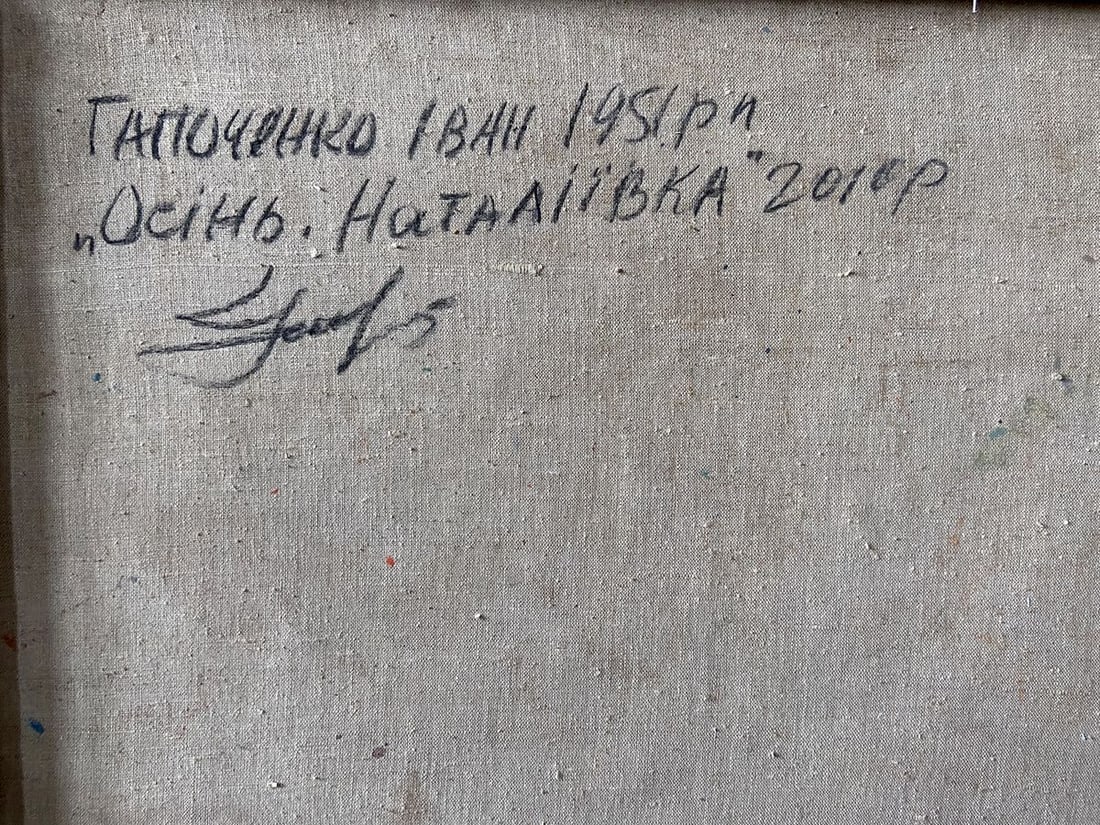 Гапоченко Іван 1951 р н
„Осінь. Наталіївка" 2010 р